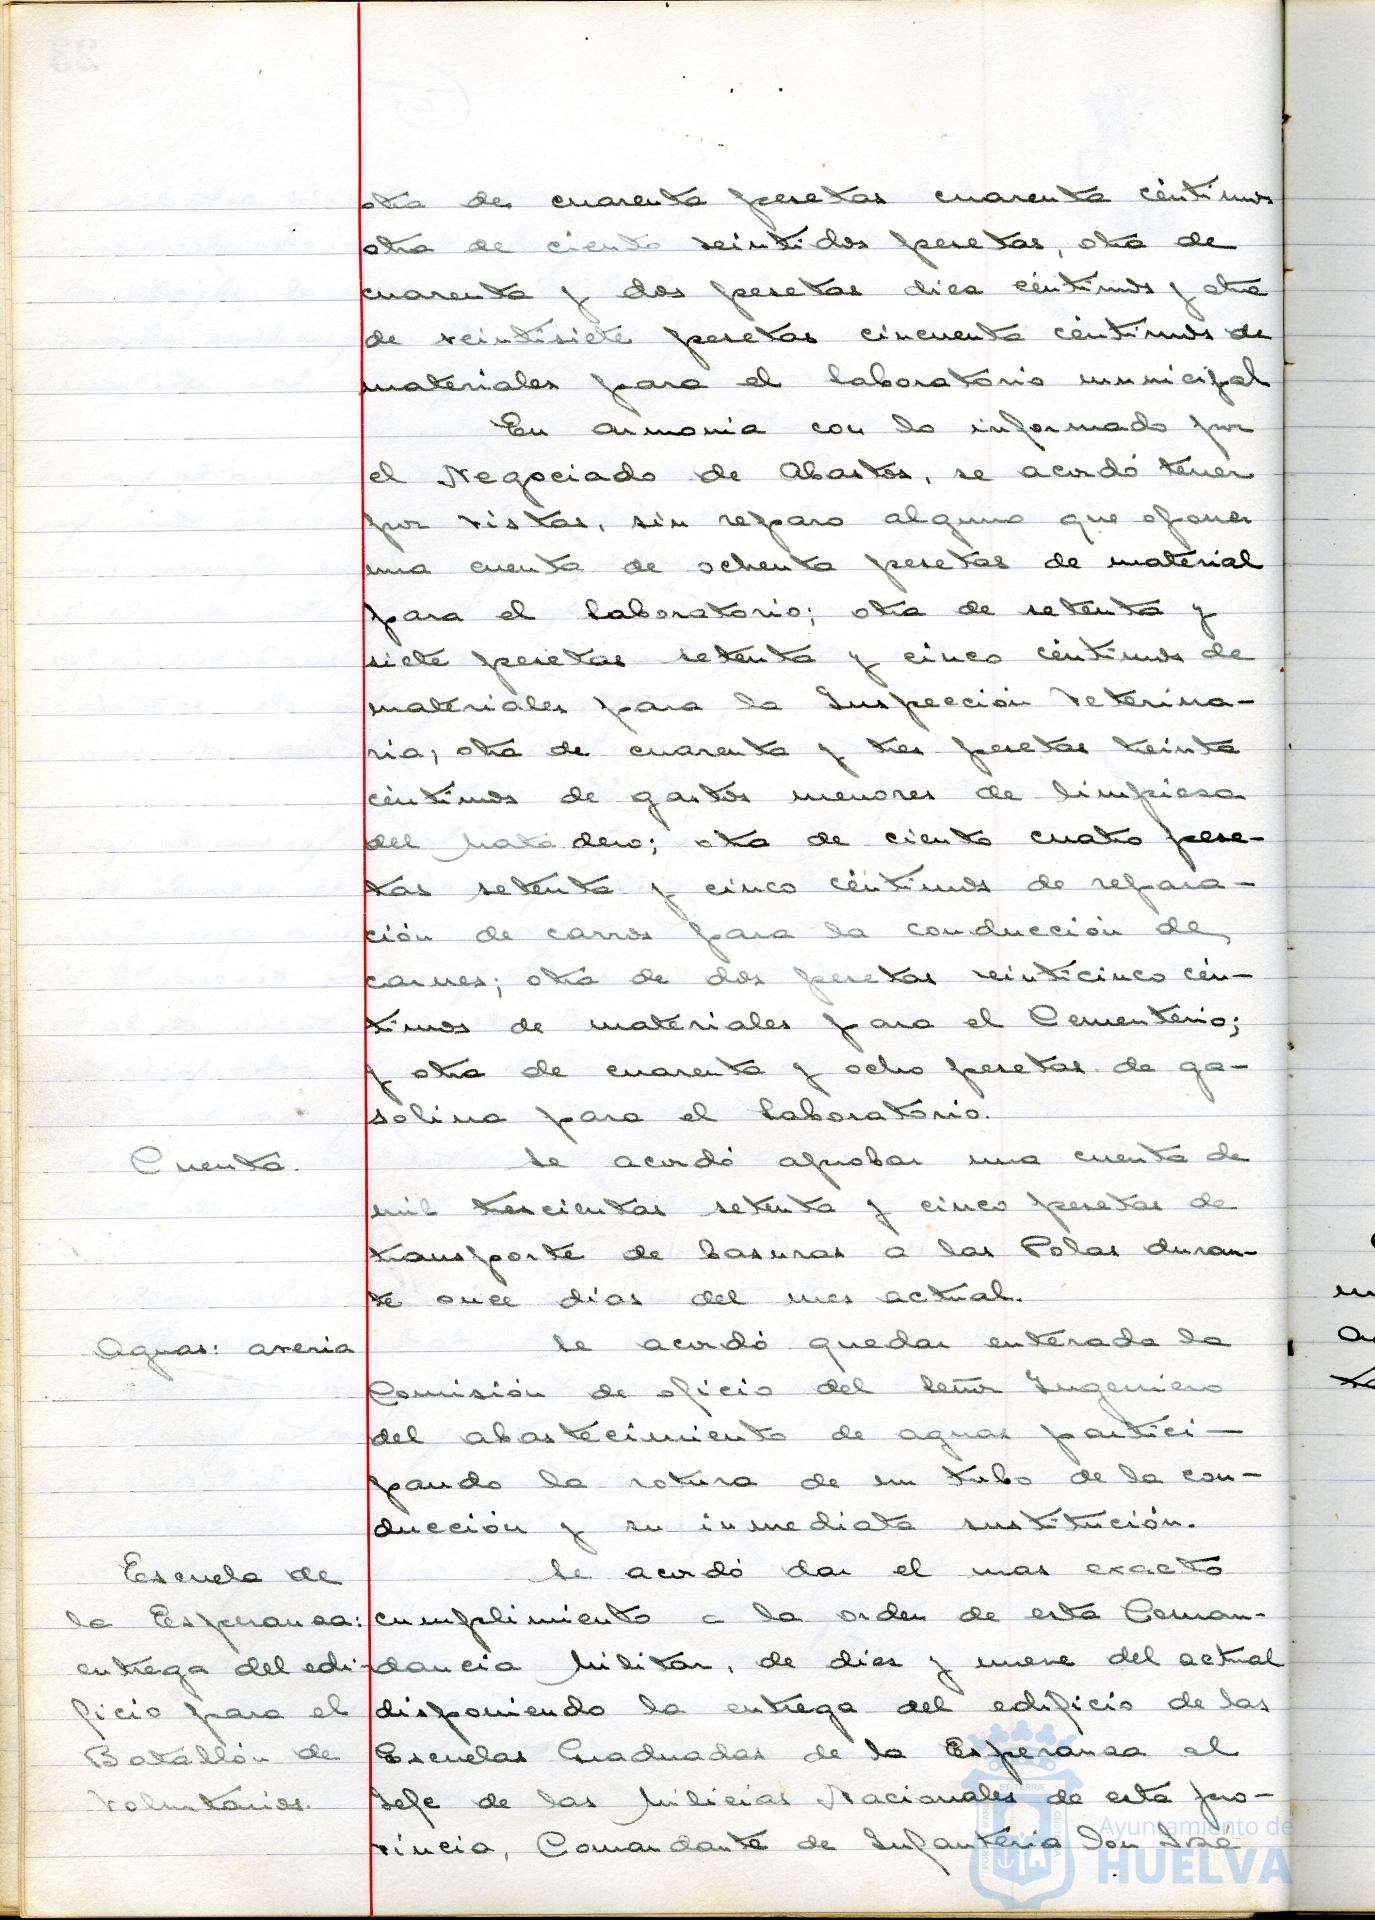 otra de cuarenta pesetas cuarenta céntimos
otra de ciento veintidos pesetas, otra de
cuarenta y dos pesetas diez céntimos y otra
de veintisiete pesetas cincuenta céntimos de
materiales para el laboratorio municipal
En armonia con lo informado por
el Negociado de Abastos, se acordó tener
por vistas, sin reparo alguno que oponer
una cuenta de ochenta pesetas de material
para el laboratorio; otra de setenta y
siete pesetas setenta y cinco céntimos de
materiales para la Inspección Veterina-
ria; otra de cuarenta y tres pesetas treinta
céntimos de gastos menores de limpieza
del Matadero; otra de ciento cuatro pese-
tas setenta y cinco céntimos de repara-
ción de carros para la conducción de
carnes; otra de dos pesetas veinticinco cén-
timos de materiales para el Cementerio;
y otra de cuarenta y ocho pesetas de ga-
solina para el laboratorio.
Cuenta.
Se acordó aprobar una cuenta de
mil trescientas setenta y cinco pesetas de
transporte de basuras a las Polas duran-
te once dias del mes actual.
Aguas: averia
Se acordó quedar enterada la
Comisión de oficio del Señor Ingeniero
del abastecimiento de aguas partici-
pando la rotura de un tubo de la con-
ducción y su inmediata sustitución.
Escuela de
la Esperanza:
entrega del edi-
ficio para el
Batallón de
Voluntarios.
Se acordó dar el mas exacto
cumplimiento a la orden de esta Coman-
dancia Militar, de diez y nueve del actual
disponiendo la entrega del edificio de las
Escuelas Graduadas de la Esperanza al
Jefe de las Milicias Nacionales de esta pro-
vincia, Comandante de Infanteria Don
Ayuntamiento de
HUELVA